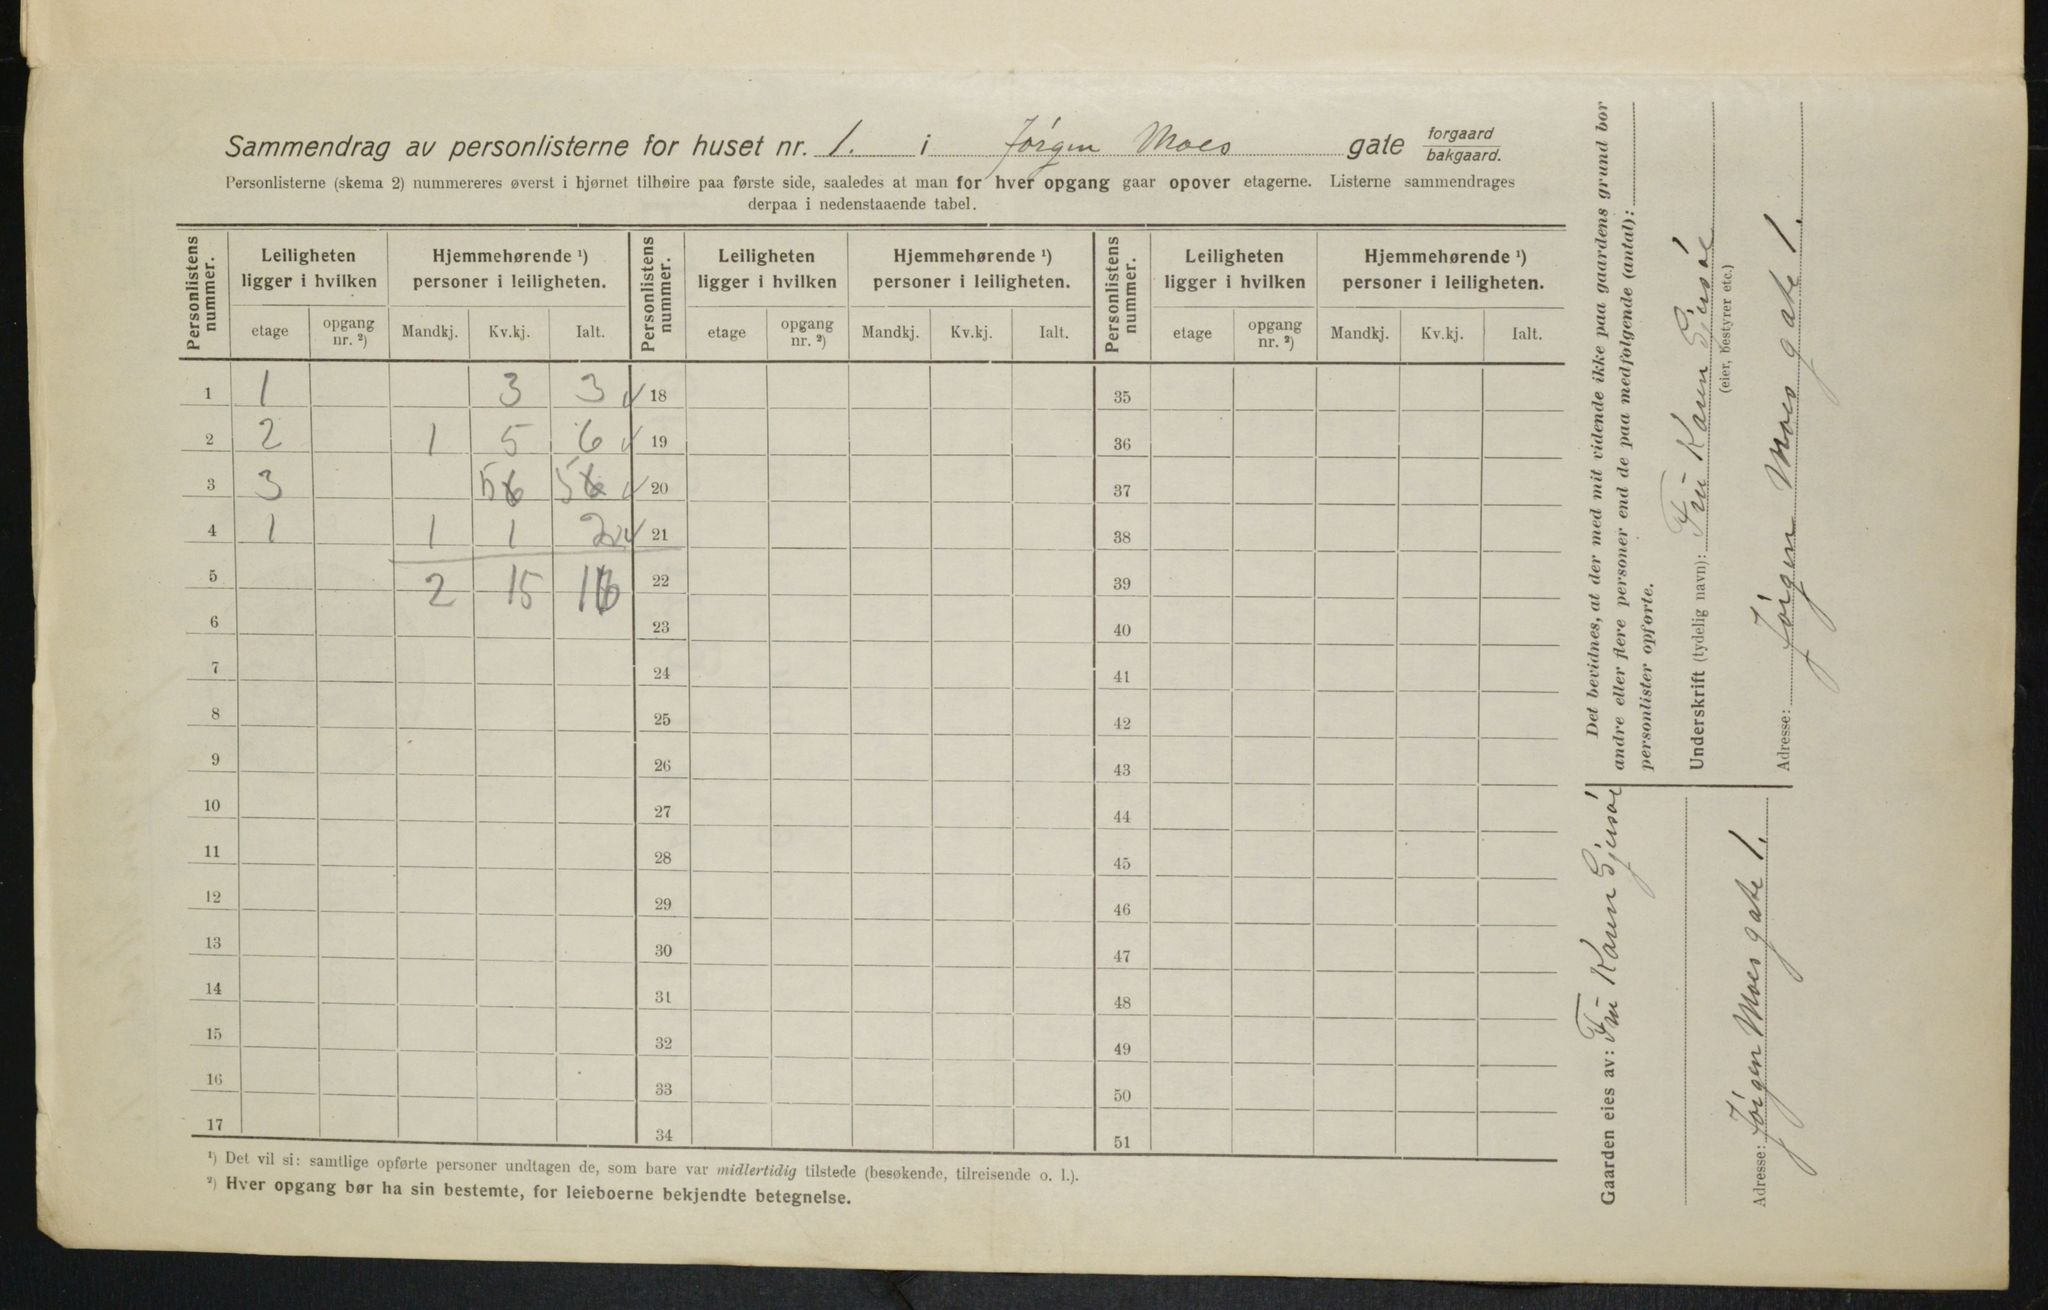 Sammendrag av personlisterne for huset nr. 1. i Jørgen Moes gate forgaard bakgaard.
Personlisterne (skema 2) nummereres øverst i hjørnet tilhøire paa første side, saaledes at man for hver opgang gaar opover etagerne. Listerne sammendrages
derpaa i nedenstaaende tabel.
Personlistens nummer. Leiligheten ligger i hvilken Hjemmehørende ¹) personer i leiligheten. Personlistens nummer. Leiligheten ligger i hvilken Hjemmehørende ¹) personer i leiligheten. Personlistens nummer. Leiligheten ligger i hvilken Hjemmehørende ¹) personer i leiligheten.
etage opgang nr. ²) Mandkj. Kv.kj. Ialt. etage opgang nr. ²) Mandkj. Kv.kj. Ialt. etage opgang nr. ²) Mandkj. Kv.kj. Ialt.
1 1 3 3 18 35
2 2 1 5 6 19 36
3 3 5 6 5 6 20 37
4 1 1 1 2 21 38
5 2 15 22 39
6 23 40
7 24 41
8 25 42
9 26 43
10 27 44
11 28 45
12 29 46
13 30 47
14 31 48
15 32 49
16 33 50
17 34 51
¹) Det vil si: samtlige opførte personer undtagen de, som bare var midlertidig tilstede (besøkende, tilreisende o. l.).
²) Hver opgang bør ha sin bestemte, for leieboerne bekjendte betegnelse.
Det bevidnes, at der med mit vidende ikke paa gaardens grund bor
andre eller flere personer end de paa medfølgende (antal):
personlister opførte.
Underskrift (tydelig navn): Fru Karen
(eier, bestyrer etc.)
Adresse: Jørgen Moes gate 1.
Gaarden eies av: Fru Karen
Adresse: Jørgen Moes gate 1.